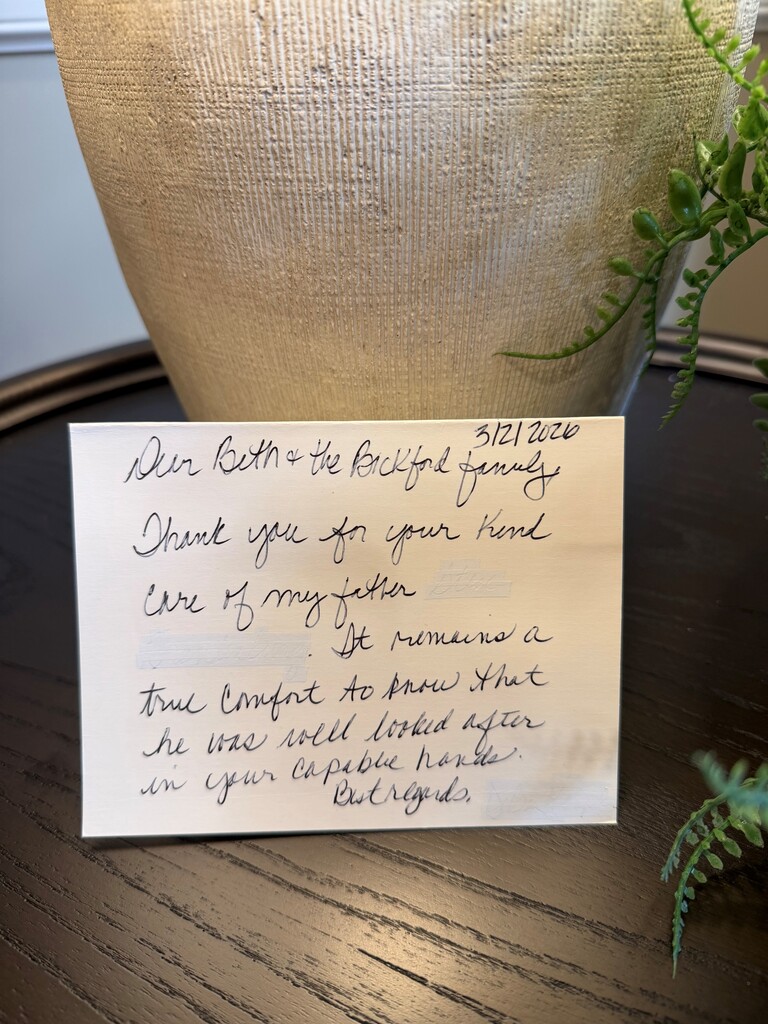 3/2/2026
Dear Beth & the Bickford family,
Thank you for your kind
care of my father
. It remains a
true comfort to know that
he was well looked after
in your capable hands.
Best regards,